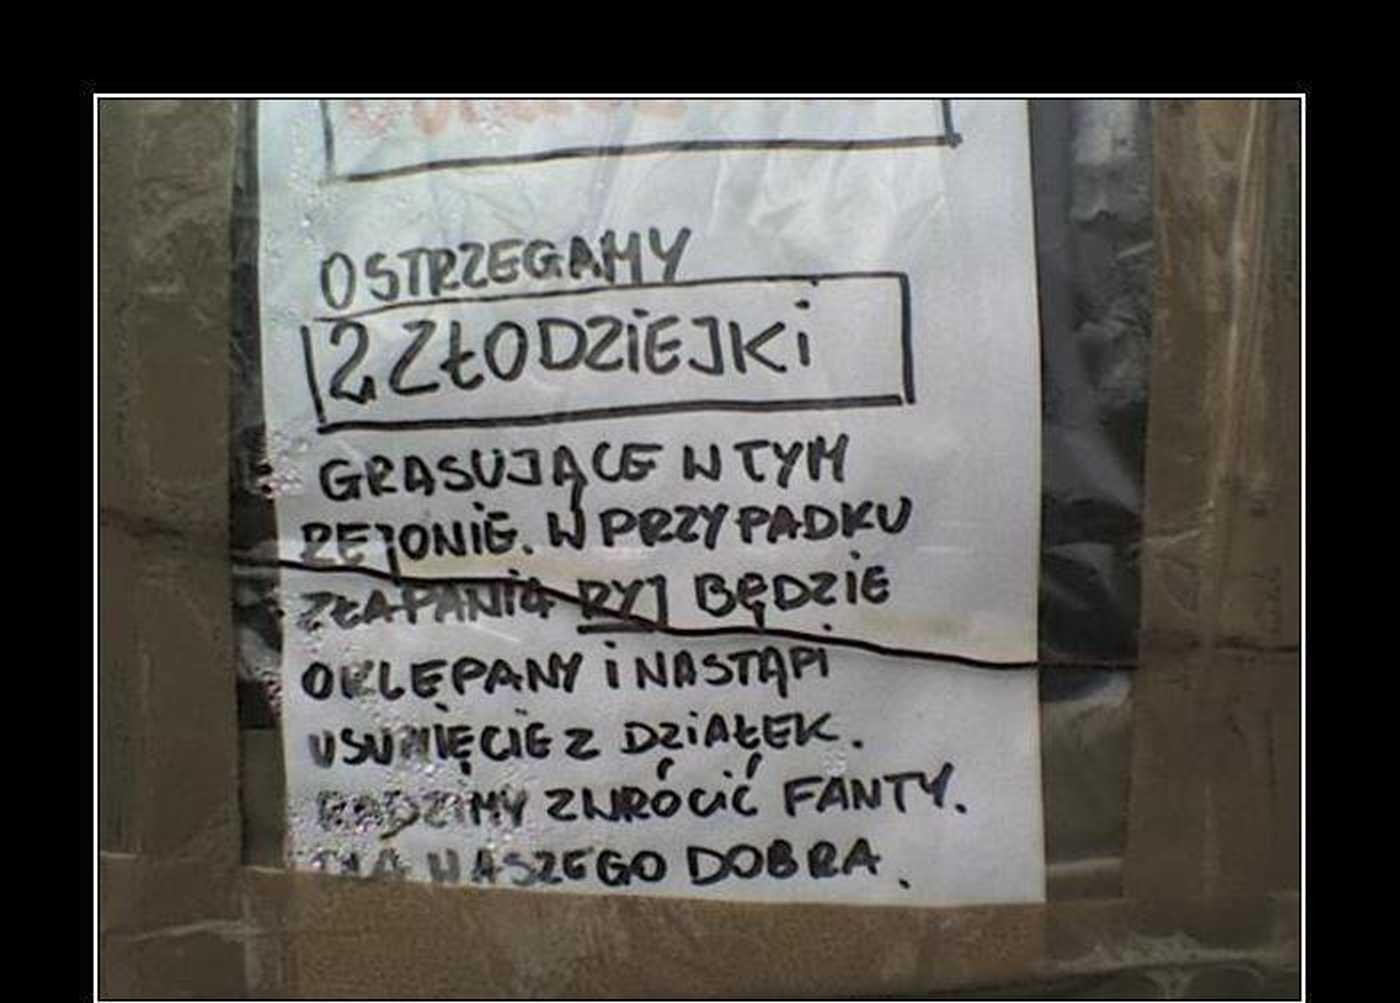 OSTRZEGAMY
2 ZŁODZIEJKi
GRASUJĄCE W TYM
REJONIE. W PRZYPADKU
ZŁAPANIA RYJ BĘDZIE
OKLEPANY i NASTĄPi
USUNIĘCIE Z DZiAŁEK.
RADZIMY ZWRÓCiĆ FANTY.
DLA WASZEGO DOBRA.